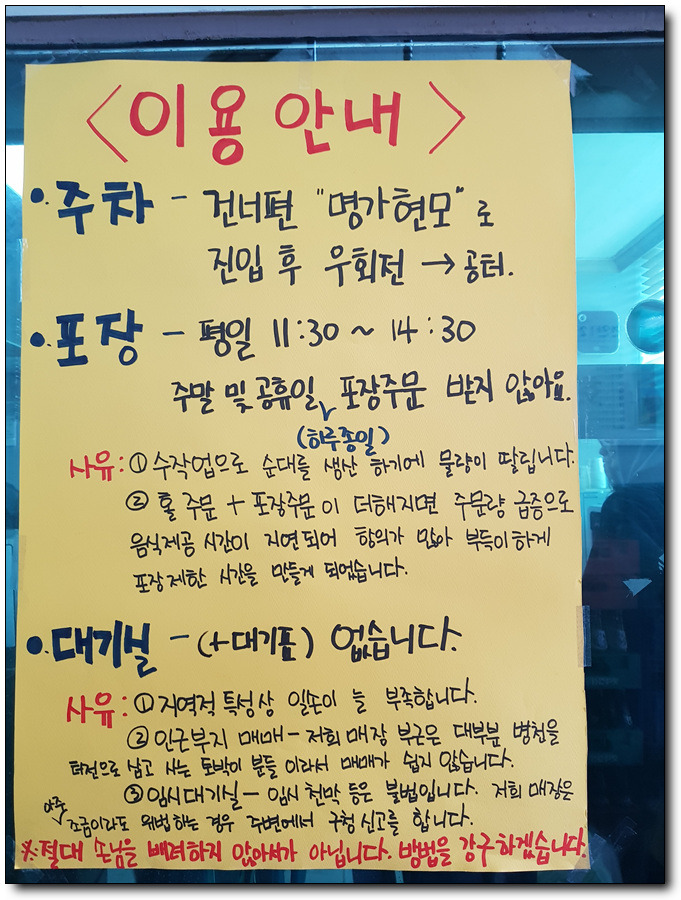 〈이용 안내〉
• 주차 - 건너편 "명가현모"로
진입 후 우회전 → 공터.
• 포장 - 평일 11:30 ~ 14:30
주말 및 공휴일 포장주문 받지 않아요.
(하루종일)
사유: ① 수작업으로 순대를 생산 하기에 물량이 딸립니다.
② 홀 주문 + 포장주문이 더해지면 주문량 급증으로
음식제공 시간이 지연되어 항의가 많아 부득이하게
포장제한 시간을 만들게 되었습니다.
• 대기실 - (+대기표) 없습니다.
사유: ① 지역적 특성상 일손이 늘 부족합니다.
② 인근부지 매매 - 저희 매장 부근은 대부분 병천을
터전으로 삼고 사는 토박이 분들 이라서 매매가 쉽지 않습니다.
③ 임시대기실 - 임시 천막 등은 불법입니다. 저희 매장은
아주 조금이라도 위법하는 경우 주변에서 구청 신고를 합니다.
※ 절대 손님을 배려하지 않아서가 아닙니다. 방법을 강구하겠습니다.